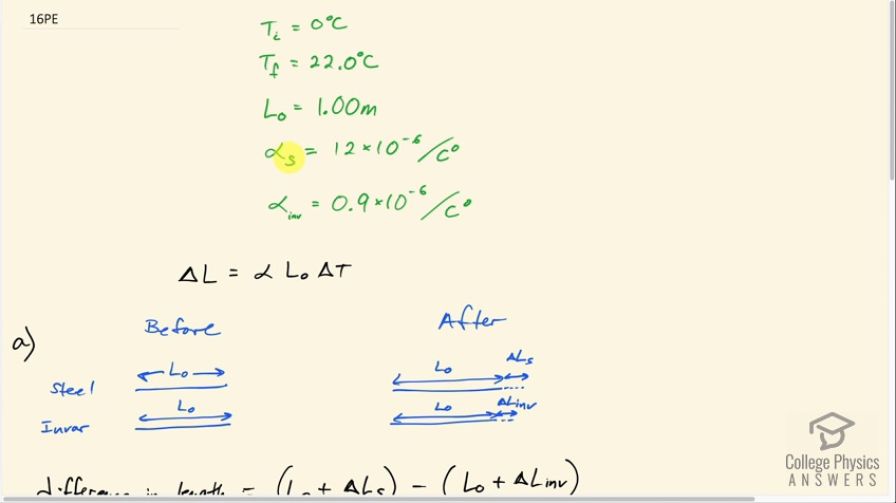 16PE
Tᵢ = 0°C
T_f = 22.0°C
L₀ = 1.00m
α_s = 12×10⁻⁶/C°
α_inv = 0.9×10⁻⁶/C°
ΔL = α L₀ ΔT
a)
Before After
Steel L₀ L₀ ΔLs
Invar L₀ L₀ ΔLinv
difference in length = (L₀ + ΔLs) − (L₀ + ΔLinv)
College Physics
ANSWERS